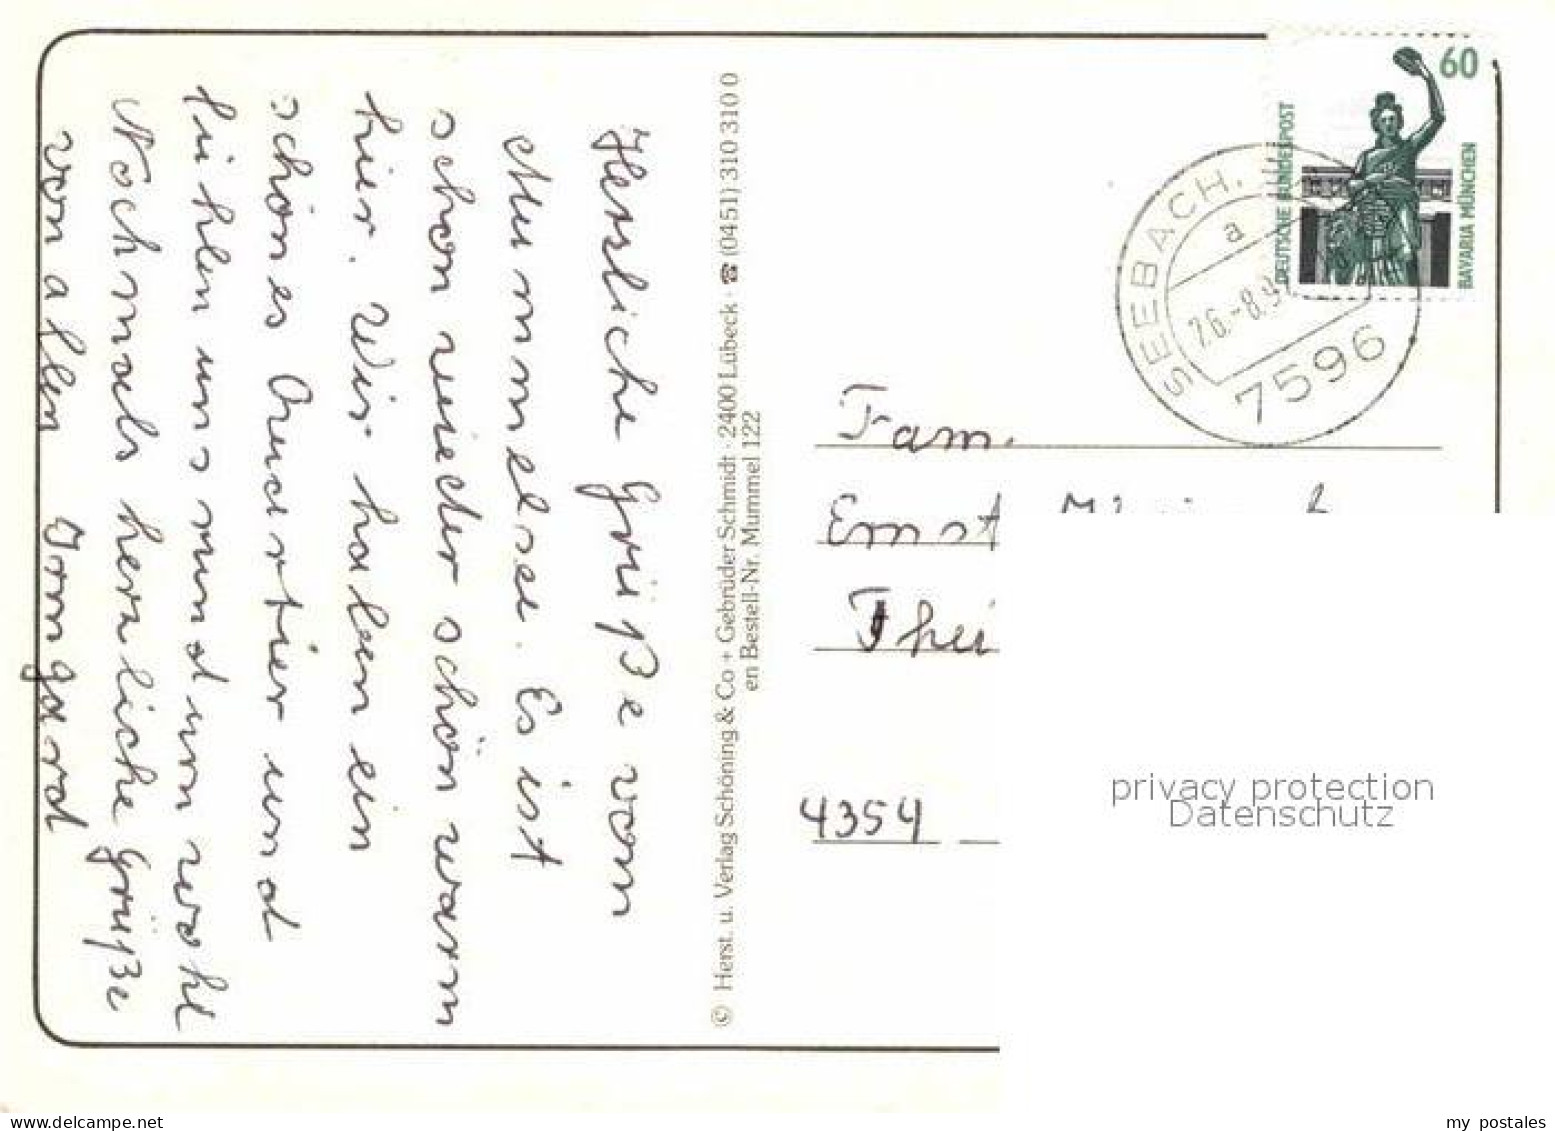 Herzliche Grüße vom
Mummelsee. Es ist
schon wieder schön warm
hier. Wir haben ein
schönes Quartier und
fühlen uns rundum wohl
Nochmals herzliche Grüße
von allen Irmgard
© Herst. u. Verlag Schöning & Co + Gebrüder Schmidt · 2400 Lübeck · ☎ (0451) 310 310 0
en Bestell-Nr. Mummel 122
60
DEUTSCHE BUNDESPOST
BAVARIA MÜNCHEN
SEEBACH,
a
-8.9
7596
Fam.
Ernst
Thei
4354
privacy protection
Datenschutz
my postales